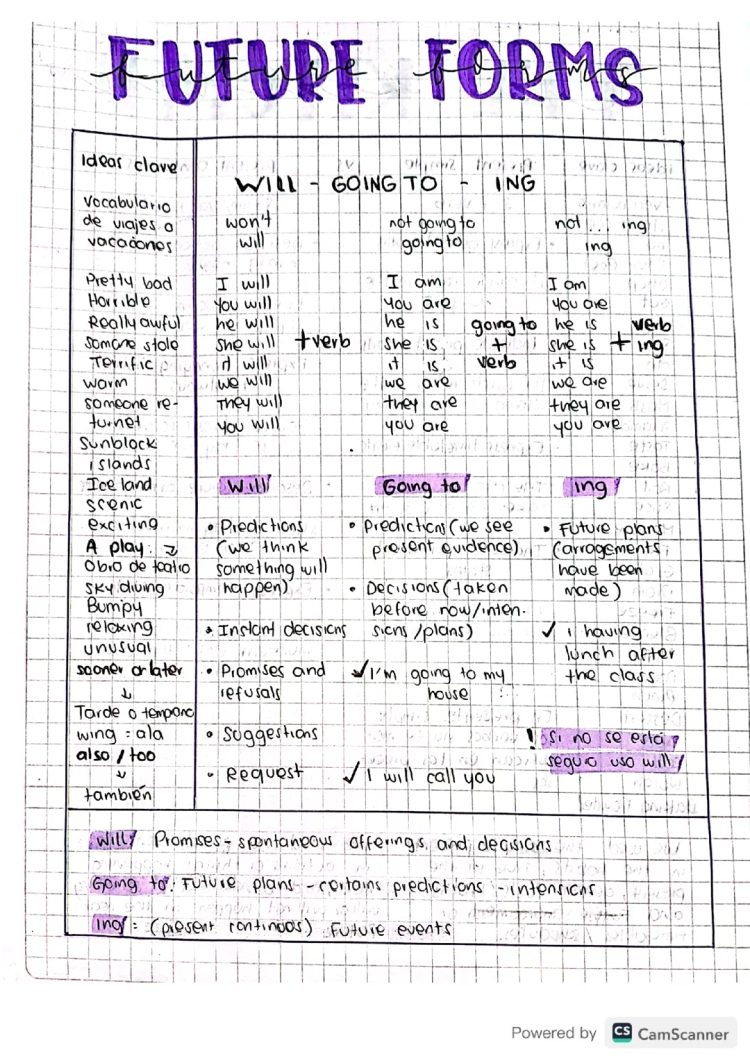 FUTURE FORMS
future forms
Ideas clave
vocabulario
de viajes o
vacaciones
Pretty bad
Horrible
Really awful
somone stole
Terrific
worm
someone re-
turnet
Sunblock
islands
Ice land
scenic
exciting
A play:
Obra de teatro
sky diving
Bumpy
relaxing
unusual
sooner or later
↓
Tarde o temprano
wing : ala
also / too
↓
también
WILL - GOING TO - ING
won't not going to not ... ing
will going to ing
I will I am I am
you will you are you are
he will he is going to he is verb
she will + verb she is + she is + ing
it will it is verb it is
we will we are we are
They will they are they are
you will you are you are
Will Going to ing
• Predictions
(we think
something will
happen)
• Instant decisions
• Promises and
refusals
• Suggestions
• Request ✓ I will call you
• Predictions (we see
present evidence)
• Decisions (taken
before now/inten-
sions/plans)
✓ I'm going to my
house
• Future plans
(arragements
have been
made)
✓ i having
lunch after
the class
! Si no se está
seguro uso will
Will: Promises - spontaneous offerings and decisions
Going to: Future plans - certains predictions - intensions
ing: (present continuos) Future events
Powered by CS CamScanner